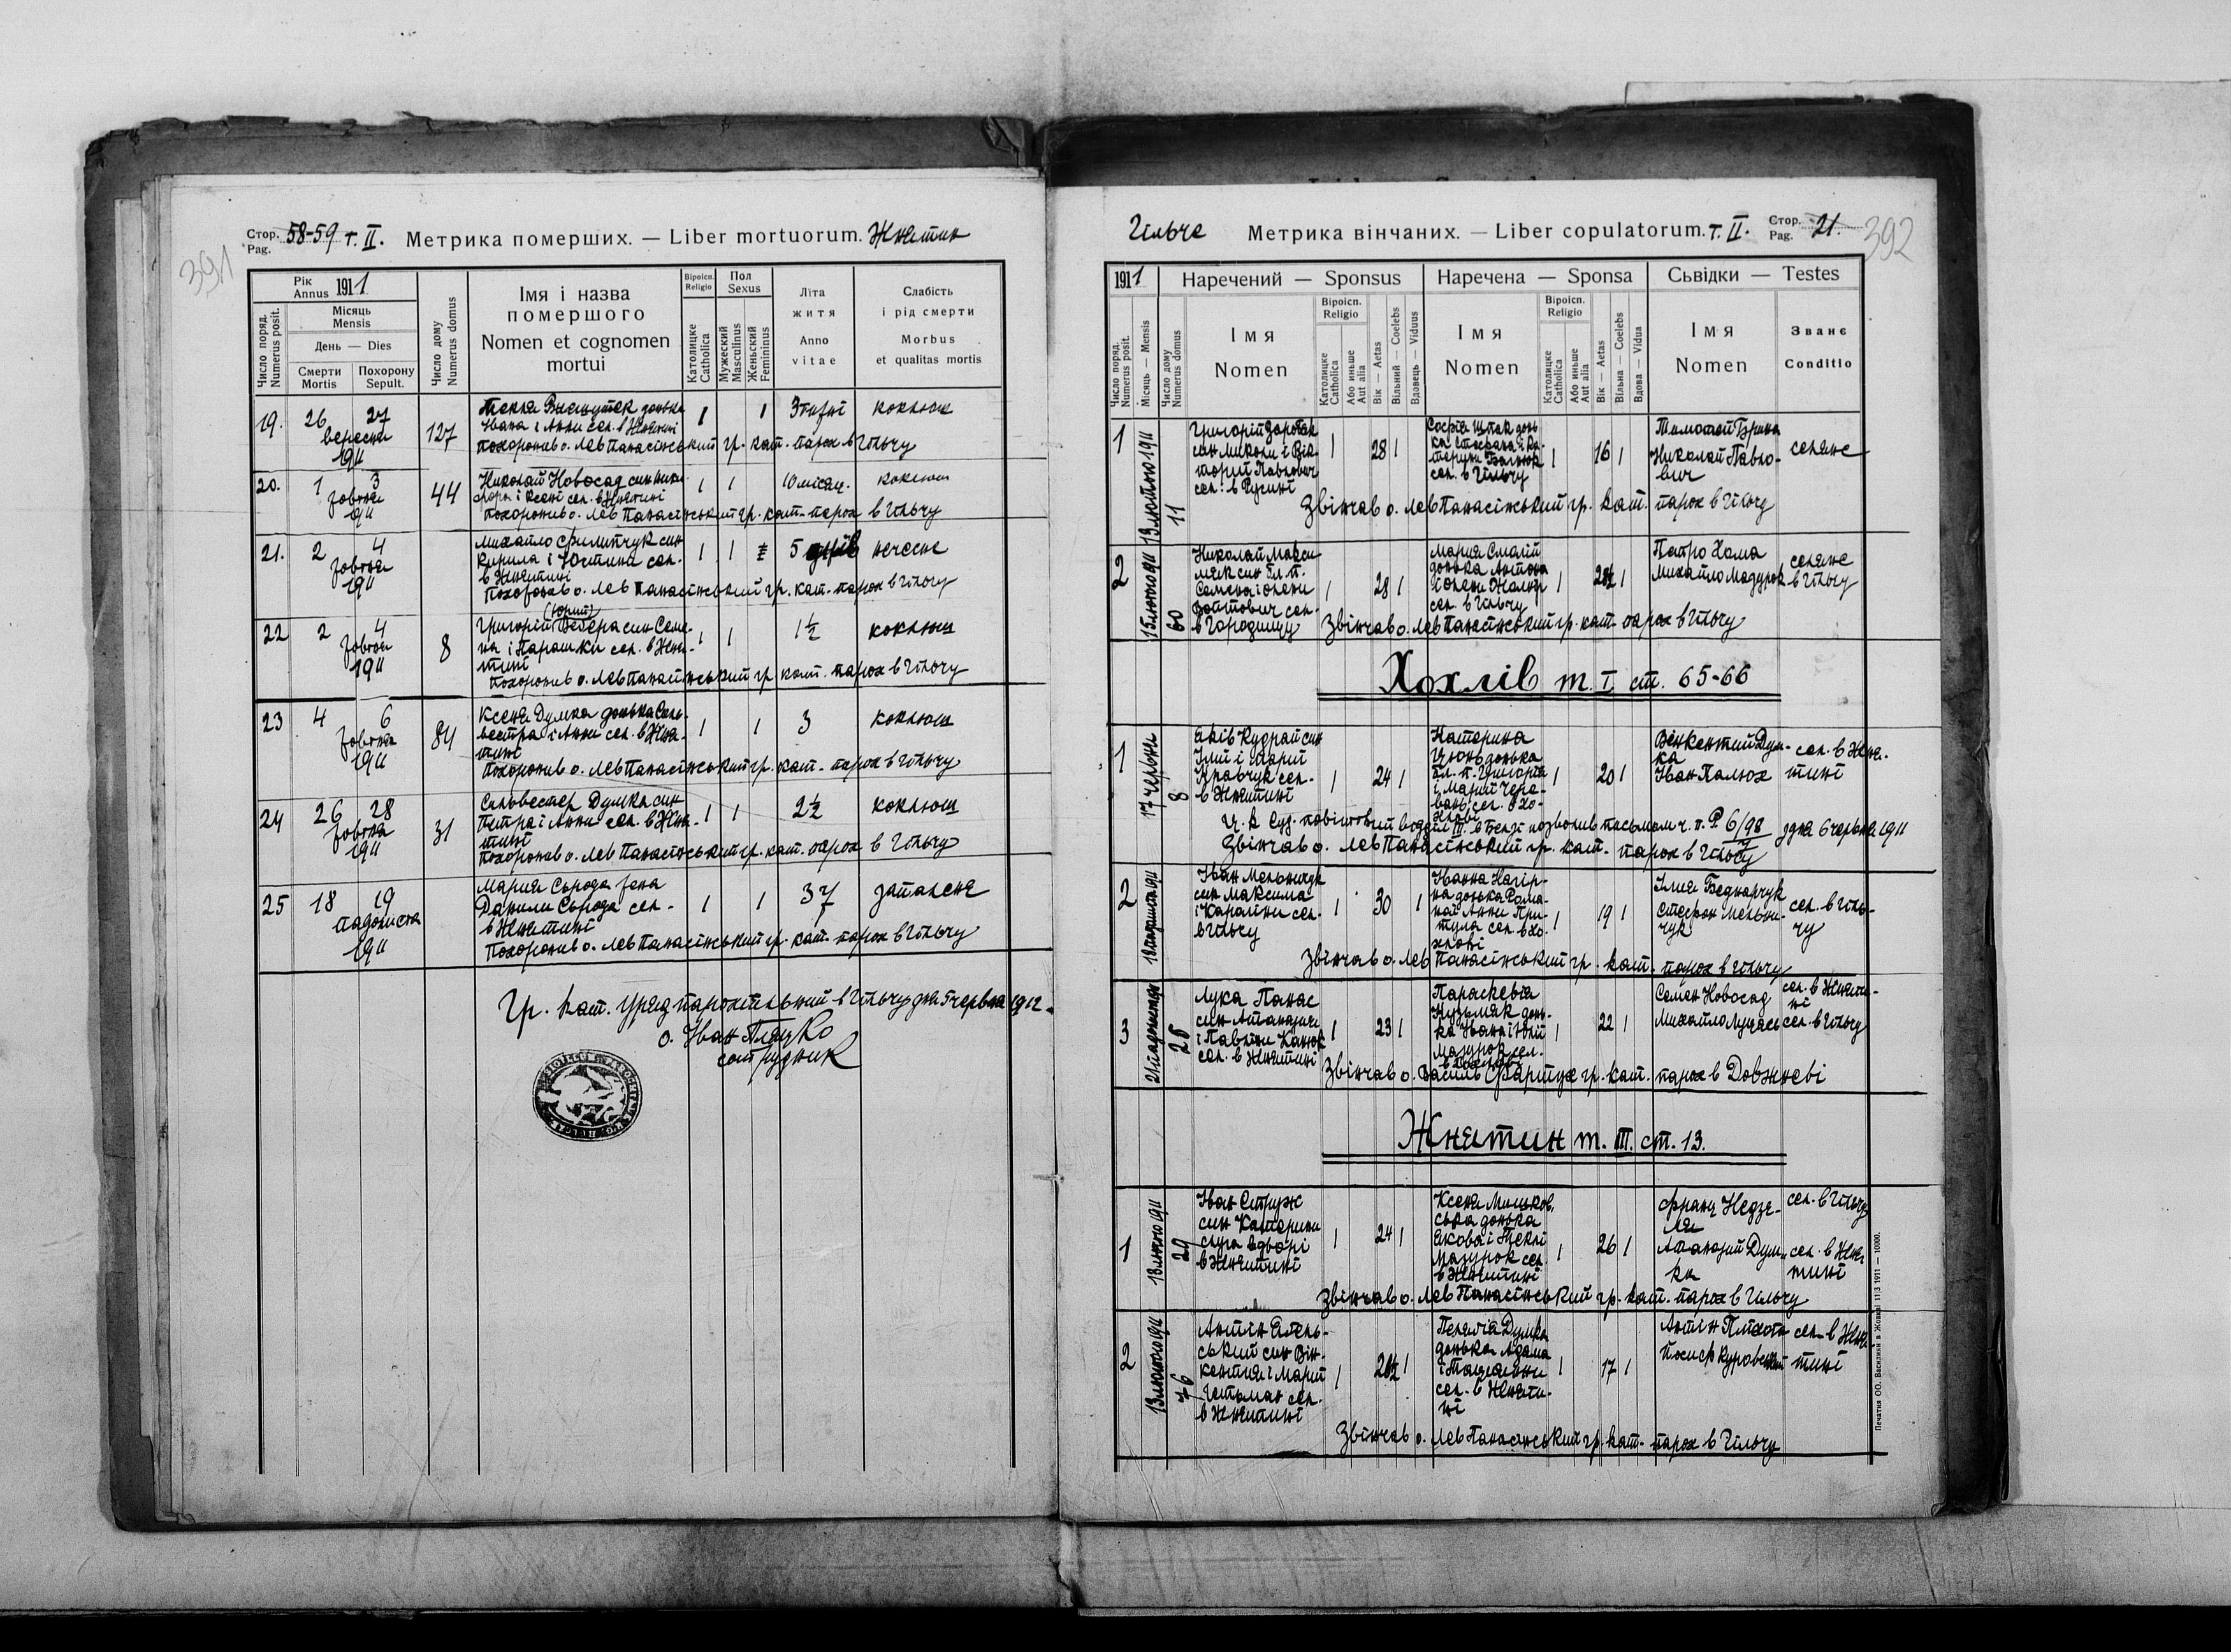 391
Стор. 58-59 т. II. Метрика померших. — Liber mortuorum. Жнятин
Pag.
Рік Annus 1911
Місяць Mensis
День — Dies
Смерти Mortis
Похорону Sepult.
Число поряд. Numerus posit.
Число дому Numerus domus
Імя і назва помершого
Nomen et cognomen mortui
Віроісп. Religio
Католицке Catholica
Пол Sexus
Мужеский Masculinus
Женьский Femininus
Літа житя
Anno vitae
Слабість і рід смерти
Morbus et qualitas mortis
19. 26 27 вересня 1911 127
донька
Івана і Анни сел. в Жнятині
1 1 коклюш
похоронив о. Лев Панасінський гр. кат. парох в Гільчу
20. 1 3 жовтня 1911 44
Николай Новосад син Ники-
фора і Ксені сел. в Жнятині
1 1 10 місяц. коклюш
похоронив о. Лев Панасінський гр. кат. парох в Гільчу
21. 2 4 жовтня 1911
Михайло Филипчук син
Кирила і Юстини сел.
в Жнятині
1 1 5 днів
похоронив о. Лев Панасінський гр. кат. парох в Гільчу
22 2 4 жовтня 1911 8
Григорій син Семе-
на і Парашки сел. в Жня-
тині
1 1 1½ коклюш
похоронив о. Лев Панасінський гр. кат. парох в Гільчу
23 4 6 жовтня 1911 84
Ксеня Думка донька Силь-
вестра і Анни сел. в Жня-
тині
1 1 3 коклюш
похоронив о. Лев Панасінський гр. кат. парох в Гільчу
24 26 28 жовтня 1911 31
Сильвестер Думка син
Петра і Анни сел. в Жня-
тині
1 1 2½ коклюш
похоронив о. Лев Панасінський гр. кат. парох в Гільчу
25 18 19 падолиста 1911
Мария Сырода жена
Данила Сырода сел.
в Жнятині
1 1 37 запаленя
Похоронив о. Лев Панасінський гр. кат. парох в Гільчу
Гр. кат. Уряд парохіяльний в Гільчу дня 5 червня 1912.
о. Іван
сотрудник
Гільче Метрика вінчаних. — Liber copulatorum. т. II. Стор. 21.
Pag.
392
1911
Наречений — Sponsus
Наречена — Sponsa
Сьвідки — Testes
Число поряд. Numerus posit.
Місяць — Mensis
Число дому Numerus domus
Імя Nomen
Віроісп. Religio
Католицке Catholica
Або иньше Aut alia
Вік — Aetas
Вільний — Coelebs
Вдовець — Viduus
Імя Nomen
Віроісп. Religio
Католицке Catholica
Або иньше Aut alia
Вік — Aetas
Вільна — Coelebs
Вдова — Vidua
Імя Nomen
Званє Conditio
1 13 лютого 1911 11
Григорій
син Миколи і Вік-
торії Павлович
сел. в Русині
1 28 1
Софія Шпак донь-
ка Стефана і Ка-
терини
сел. в Гільчу
1 16 1
Николай Павло-
вич
селяне
Звінчав о. Лев Панасінський гр. кат. парох в Гільчу
2 15 лютого 1911 60
Николай Макси-
мяк син бл. п.
Семена і Олени
Войтович сел.
в Городищу
1 28 1
Мария Смалій
донька Антона
і Олени
сел. в Гільчу
1 1
Петро Хома
Михайло Мадурок
селяне
в Гільчу
Звінчав о. Лев Панасінський гр. кат. парох в Гільчу
Хохлів т. I. ст. 65-66
1 17 червня 8
Яків Кудрай син
Ілії і Марії
Кравчук сел.
в Жнятині
1 24 1
Катерина
донька
бл. п. Григорія
і Марії
сел. в Хо-
хлові
1 20 1
Вінкентий Дум-
ка
Іван Палюх
сел. в Жня-
тині
Ц. к. Суд повітовий відділ III. в Белзі позволив письмом ч. п. P. 6/98 здня 6 червня 1911
Звінчав о. Лев Панасінський гр. кат. парох в Гільчу
2
Іван Мельничук
син Максима
сел.
в Гільчу
1 30 1
Іванна Нагір-
на донька Рома-
на і Анни При-
тула сел. в Хо-
хлові
1 19 1
Ілия Беднарчук
Стефан Мельни-
чук
сел. в Гіль-
чу
Звінчав о. Лев Панасінський гр. кат. парох в Гільчу
3 25
Лука Панас
син Атаназия
і Павлини
сел. в Жнятині
1 23 1
Параскевія
Кузьмяк донь-
ка Івана і Юлії
Мазурок сел.
1 22 1
Семен Новосад
Михайло Луцась
сел. в Жняти-
ні
сел. в Гільчу
Звінчав о. Василь Фартух гр. кат. парох в Довжневі
Жнятин т. III. ст. 13.
1 13 лютого 1911 29
Іван Струж
син Катерини
слуга в дворі
в Жнятині
1 24 1
Ксеня Мильков-
ська донька
Якова і Теклі
Мазурок сел.
в Жнятині
1 26 1
Франц Недзе-
ля
Атаназий Дум-
ка
сел. в Гільчу
сел. в Жня-
тині
Звінчав о. Лев Панасінський гр. кат. парох в Гільчу
2 13 лютого 1911 76
Антін
ський син Він-
кентия і Марії
Гетьман сел.
в Жнятині
1 1
Пелагія Думка
донька Адама
і Тацианни
сел. в Жняти-
ні
1 17 1
Антін
Посиф
сел. в Жня-
тині
Звінчав о. Лев Панасінський гр. кат. парох в Гільчу
Печатня ОО. Василиян в Жовкві 11|3 1911 — 10000.